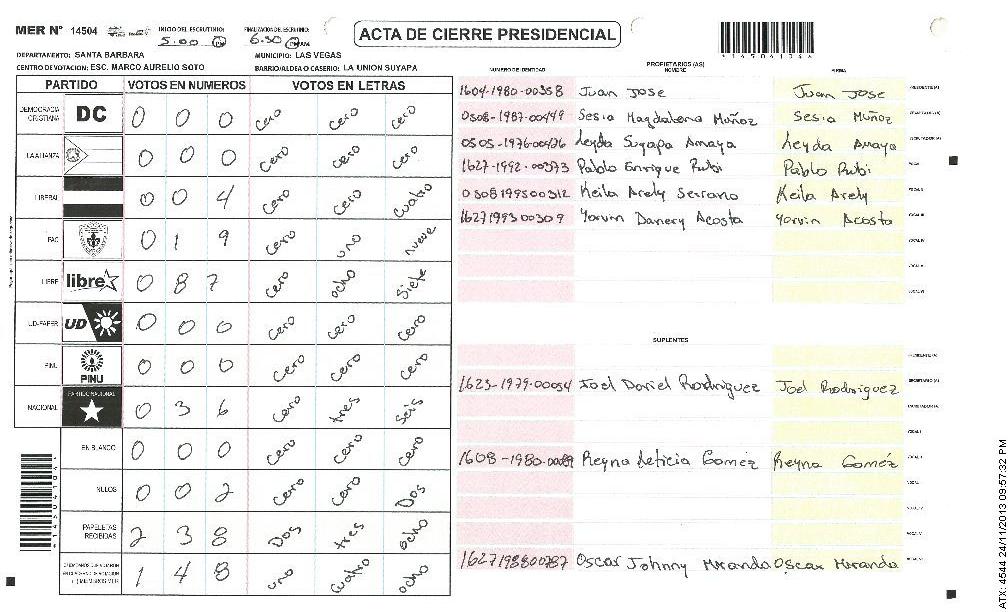 MER Nº 14504
INICIO DEL ESCRUTINIO: 5:00 PM
FINALIZACION DEL ESCRUTINIO: 6:30 PM
ACTA DE CIERRE PRESIDENCIAL
DEPARTAMENTO: SANTA BARBARA
MUNICIPIO: LAS VEGAS
CENTRO DE VOTACION: ESC. MARCO AURELIO SOTO
BARRIO/ALDEA O CASERIO: LA UNION SUYAPA
PARTIDO VOTOS EN NUMEROS VOTOS EN LETRAS
DEMOCRACIA CRISTIANA DC 0 0 0 Cero Cero Cero
LA ALIANZA 0 0 0 Cero Cero Cero
LIBERAL 0 0 4 Cero Cero Cuatro
PAC 0 1 9 Cero uno nueve
LIBRE libre 0 8 7 Cero ocho Siete
UD-FAPER UD 0 0 0 Cero Cero Cero
PINU PINU 0 0 0 Cero Cero Cero
NACIONAL PARTIDO NACIONAL 0 3 6 Cero tres Seis
EN BLANCO 0 0 0 Cero Cero Cero
NULOS 0 0 2 Cero Cero Dos
PAPELETAS RECIBIDAS 2 3 8 Dos tres ocho
1 4 8 uno Cuatro ocho
PROPIETARIOS (AS)
NUMERO DE IDENTIDAD NOMBRE FIRMA
1604-1980-00358 Juan Jose Juan Jose
0508-1987-00449 Sesia Magdalena Muñoz Sesia Muñoz
0505-1976-00426 Leyda Suyapa Amaya Leyda Amaya
1627-1992-00373 Pablo Enrique Rubi Pablo Rubi
0508199500312 Keila Arely Serrano Keila Arely
1627199300309 Yorvin Danery Acosta Yorvin Acosta
SUPLENTES
1623-1979-00054 Joel Dariel Rodriguez Joel Rodriguez
1608-1980-00089 Reyna Leticia Goméz Reyna Goméz
1627198800787 Oscar Johnny Miranda Oscar Miranda
ATX: 4544 24/11/2013 09:57:32 PM